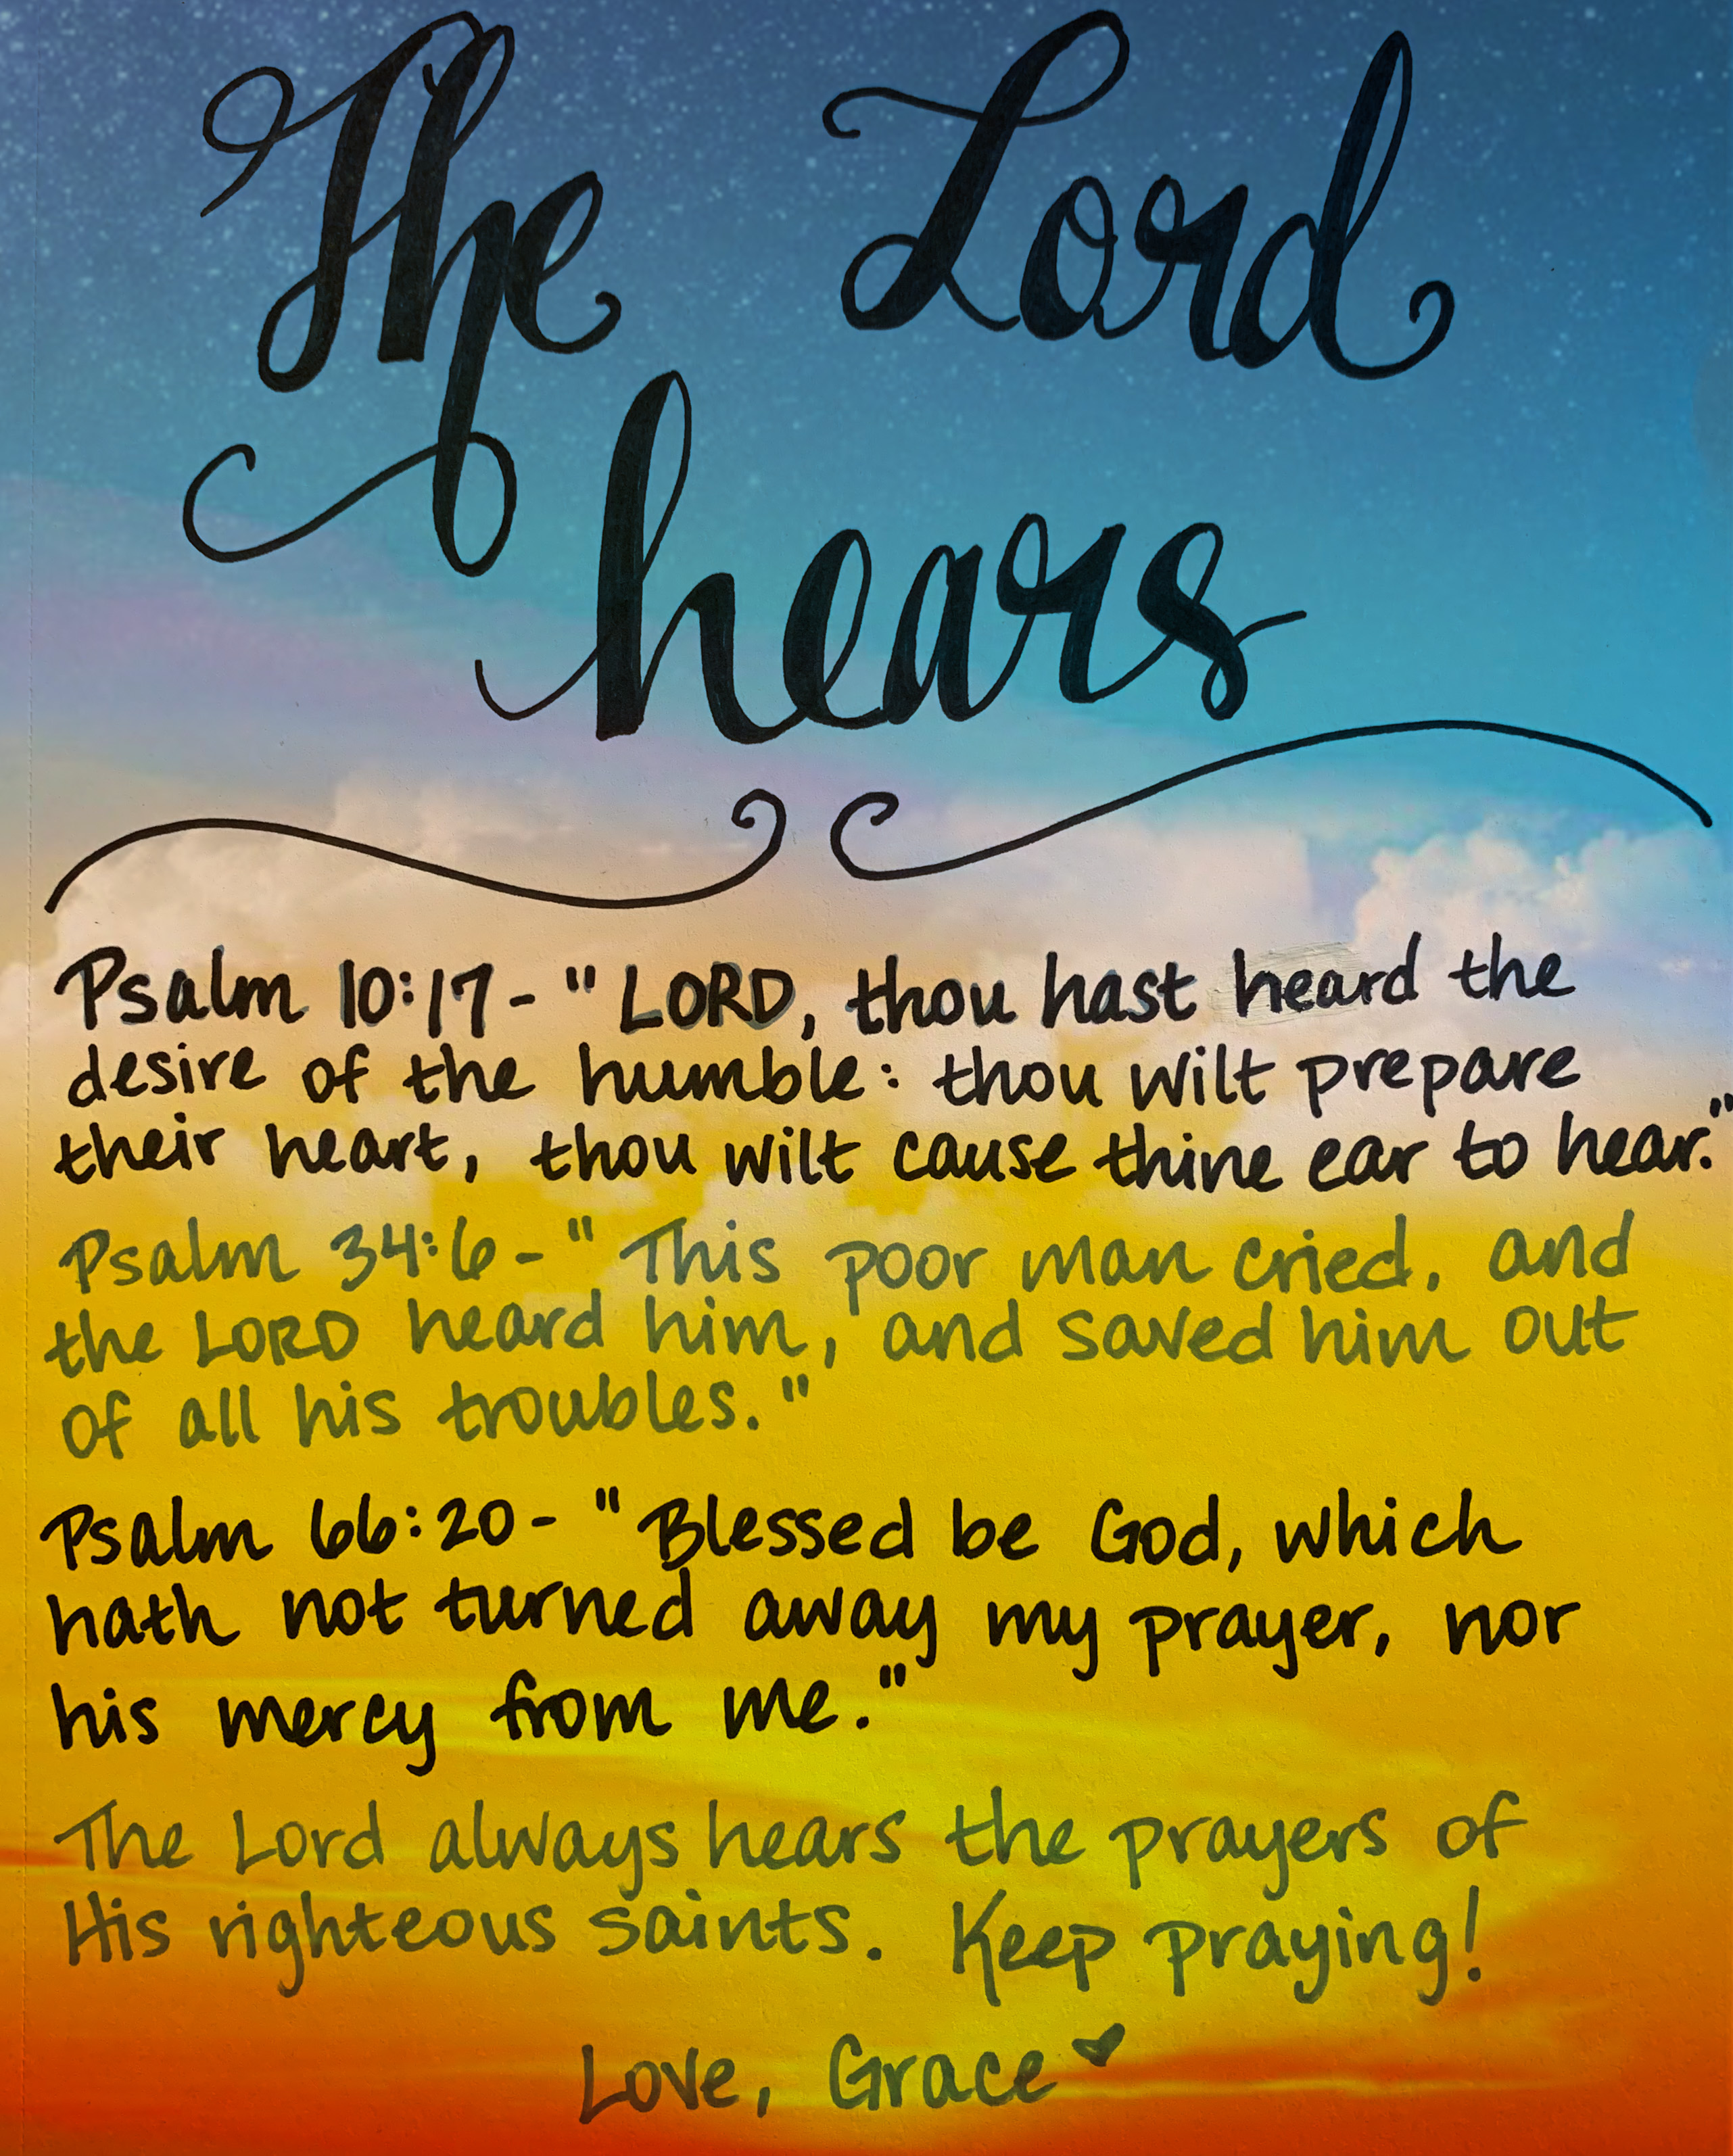 The Lord
hears
Psalm 10:17 - "LORD, thou hast heard the
desire of the humble: thou wilt prepare
their heart, thou wilt cause thine ear to hear."
Psalm 34:6 - "This poor man cried, and
the LORD heard him, and saved him out
of all his troubles."
Psalm 66:20 - "Blessed be God, which
hath not turned away my prayer, nor
his mercy from me."
The Lord always hears the prayers of
His righteous saints. Keep praying!
Love, Grace ♥